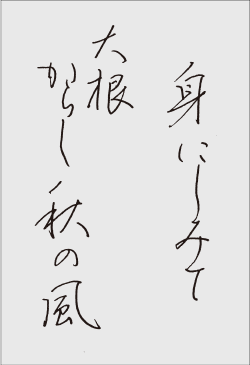 身にしみて
大根
からし秋の風